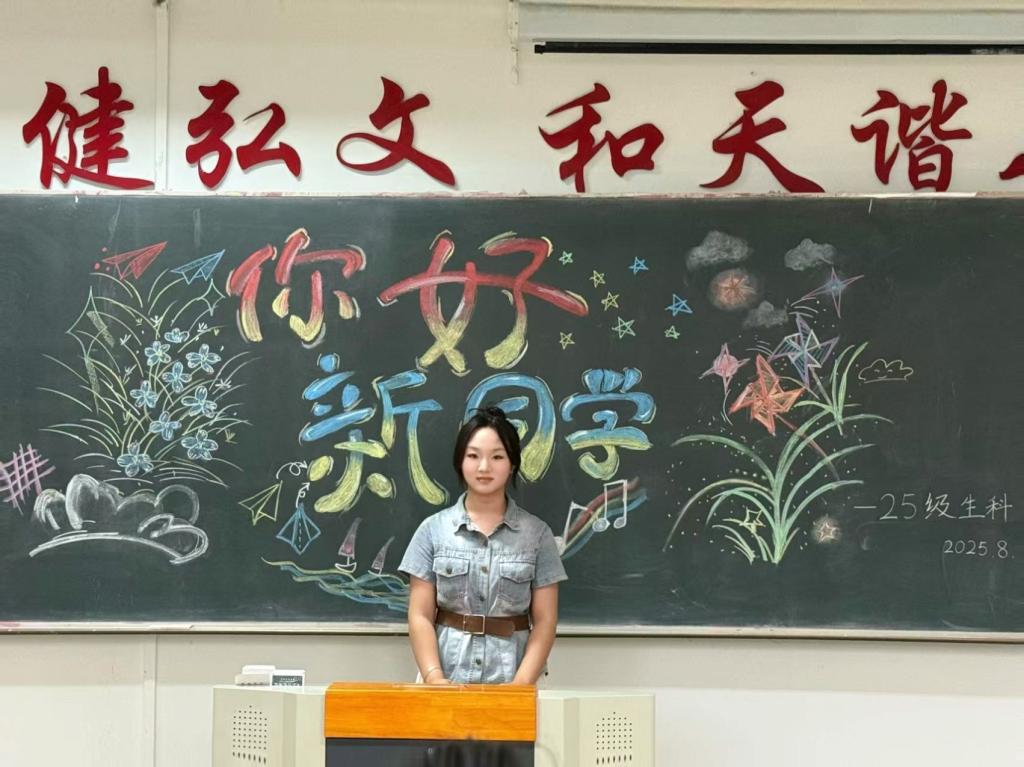 健弘文 和天谐
你好
新同学
—25级生科
2025.8.